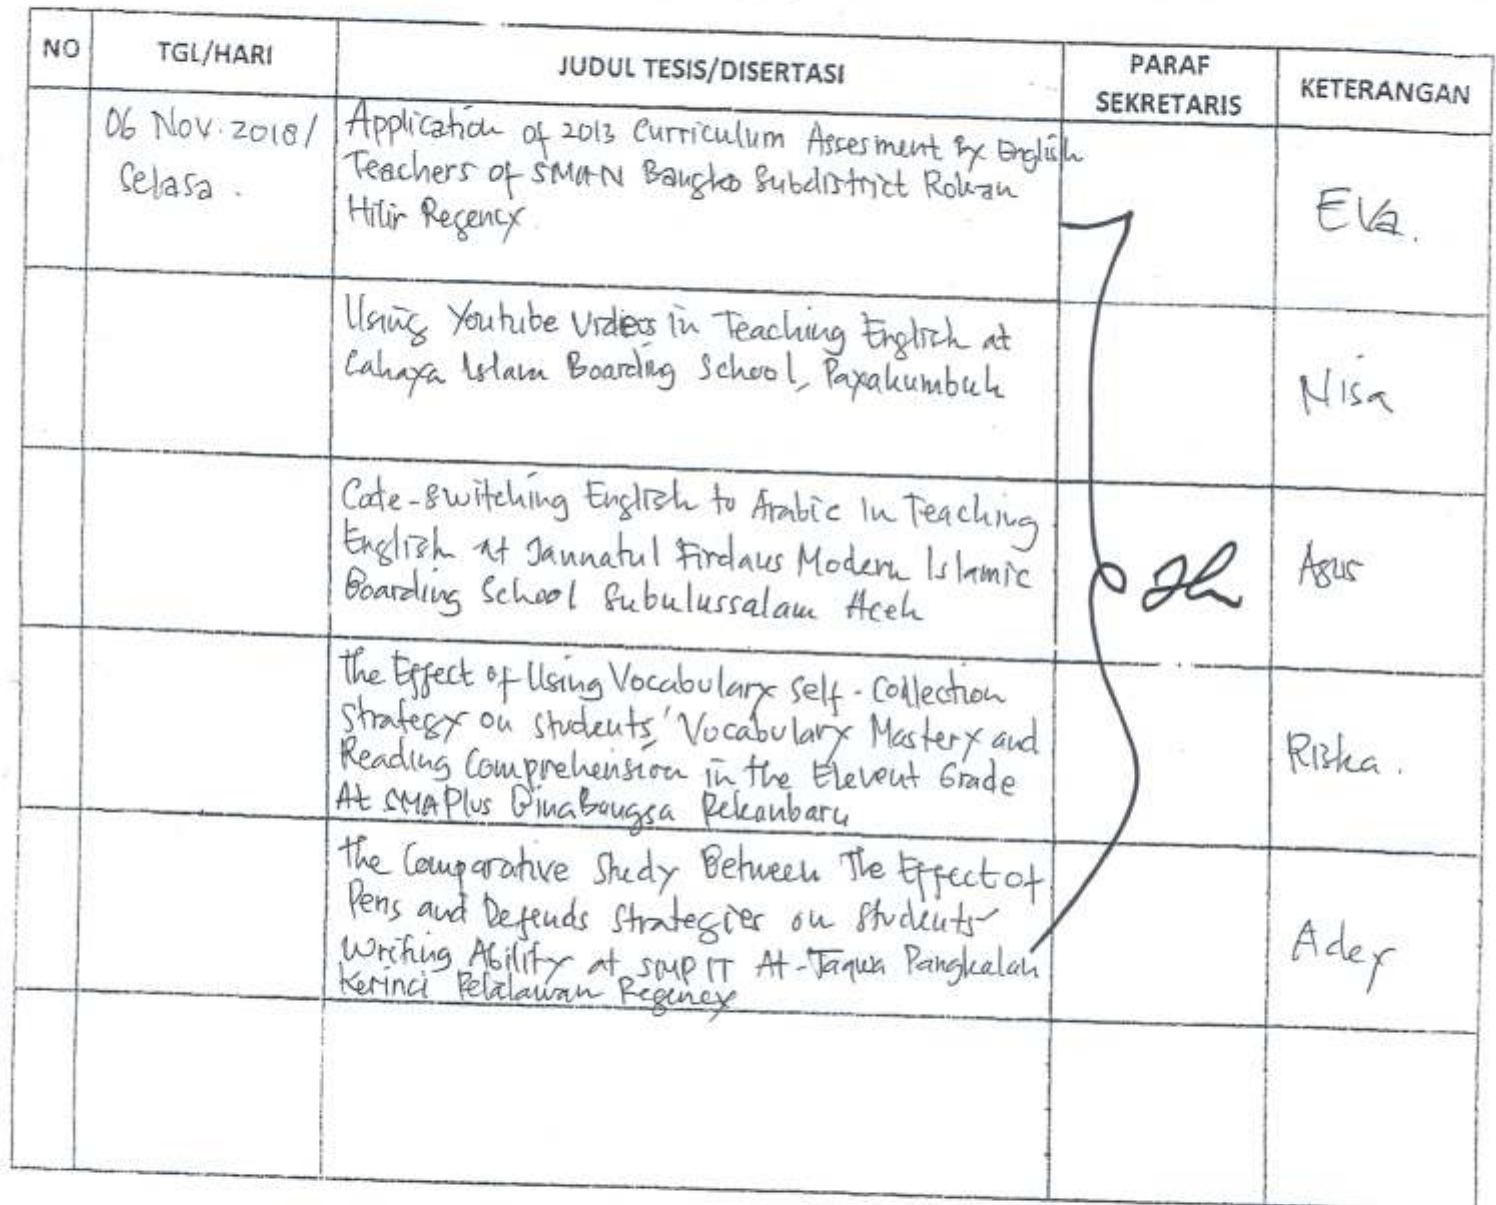 NO TGL/HARI JUDUL TESIS/DISERTASI PARAF SEKRETARIS KETERANGAN
06 Nov. 2018/ Selasa.
Application of 2013 Curriculum Assesment By English
Teachers of SMAN Bangko Subdistrict Rokan
Hilir Regency
Eva.
Using Youtube Videos in Teaching English at
Cahaya Islam Boarding School, Payakumbuh
Nisa
Code-switching English to Arabic in Teaching
English at Jannatul Firdaus Modern Islamic
Boarding School Subulussalam Aceh
Agus
The Effect of Using Vocabulary Self-Collection
Strategy on Students' Vocabulary Mastery and
Reading Comprehension in the Elevent Grade
At SMA Plus Bina Bangsa Pekanbaru
Riska.
The Comparative Study Between The Effect of
Pens and Defends Strategies on Students'
Writing Ability at SMP IT At-Taqwa Pangkalan
Kerinci Pelalawan Regency
Adey